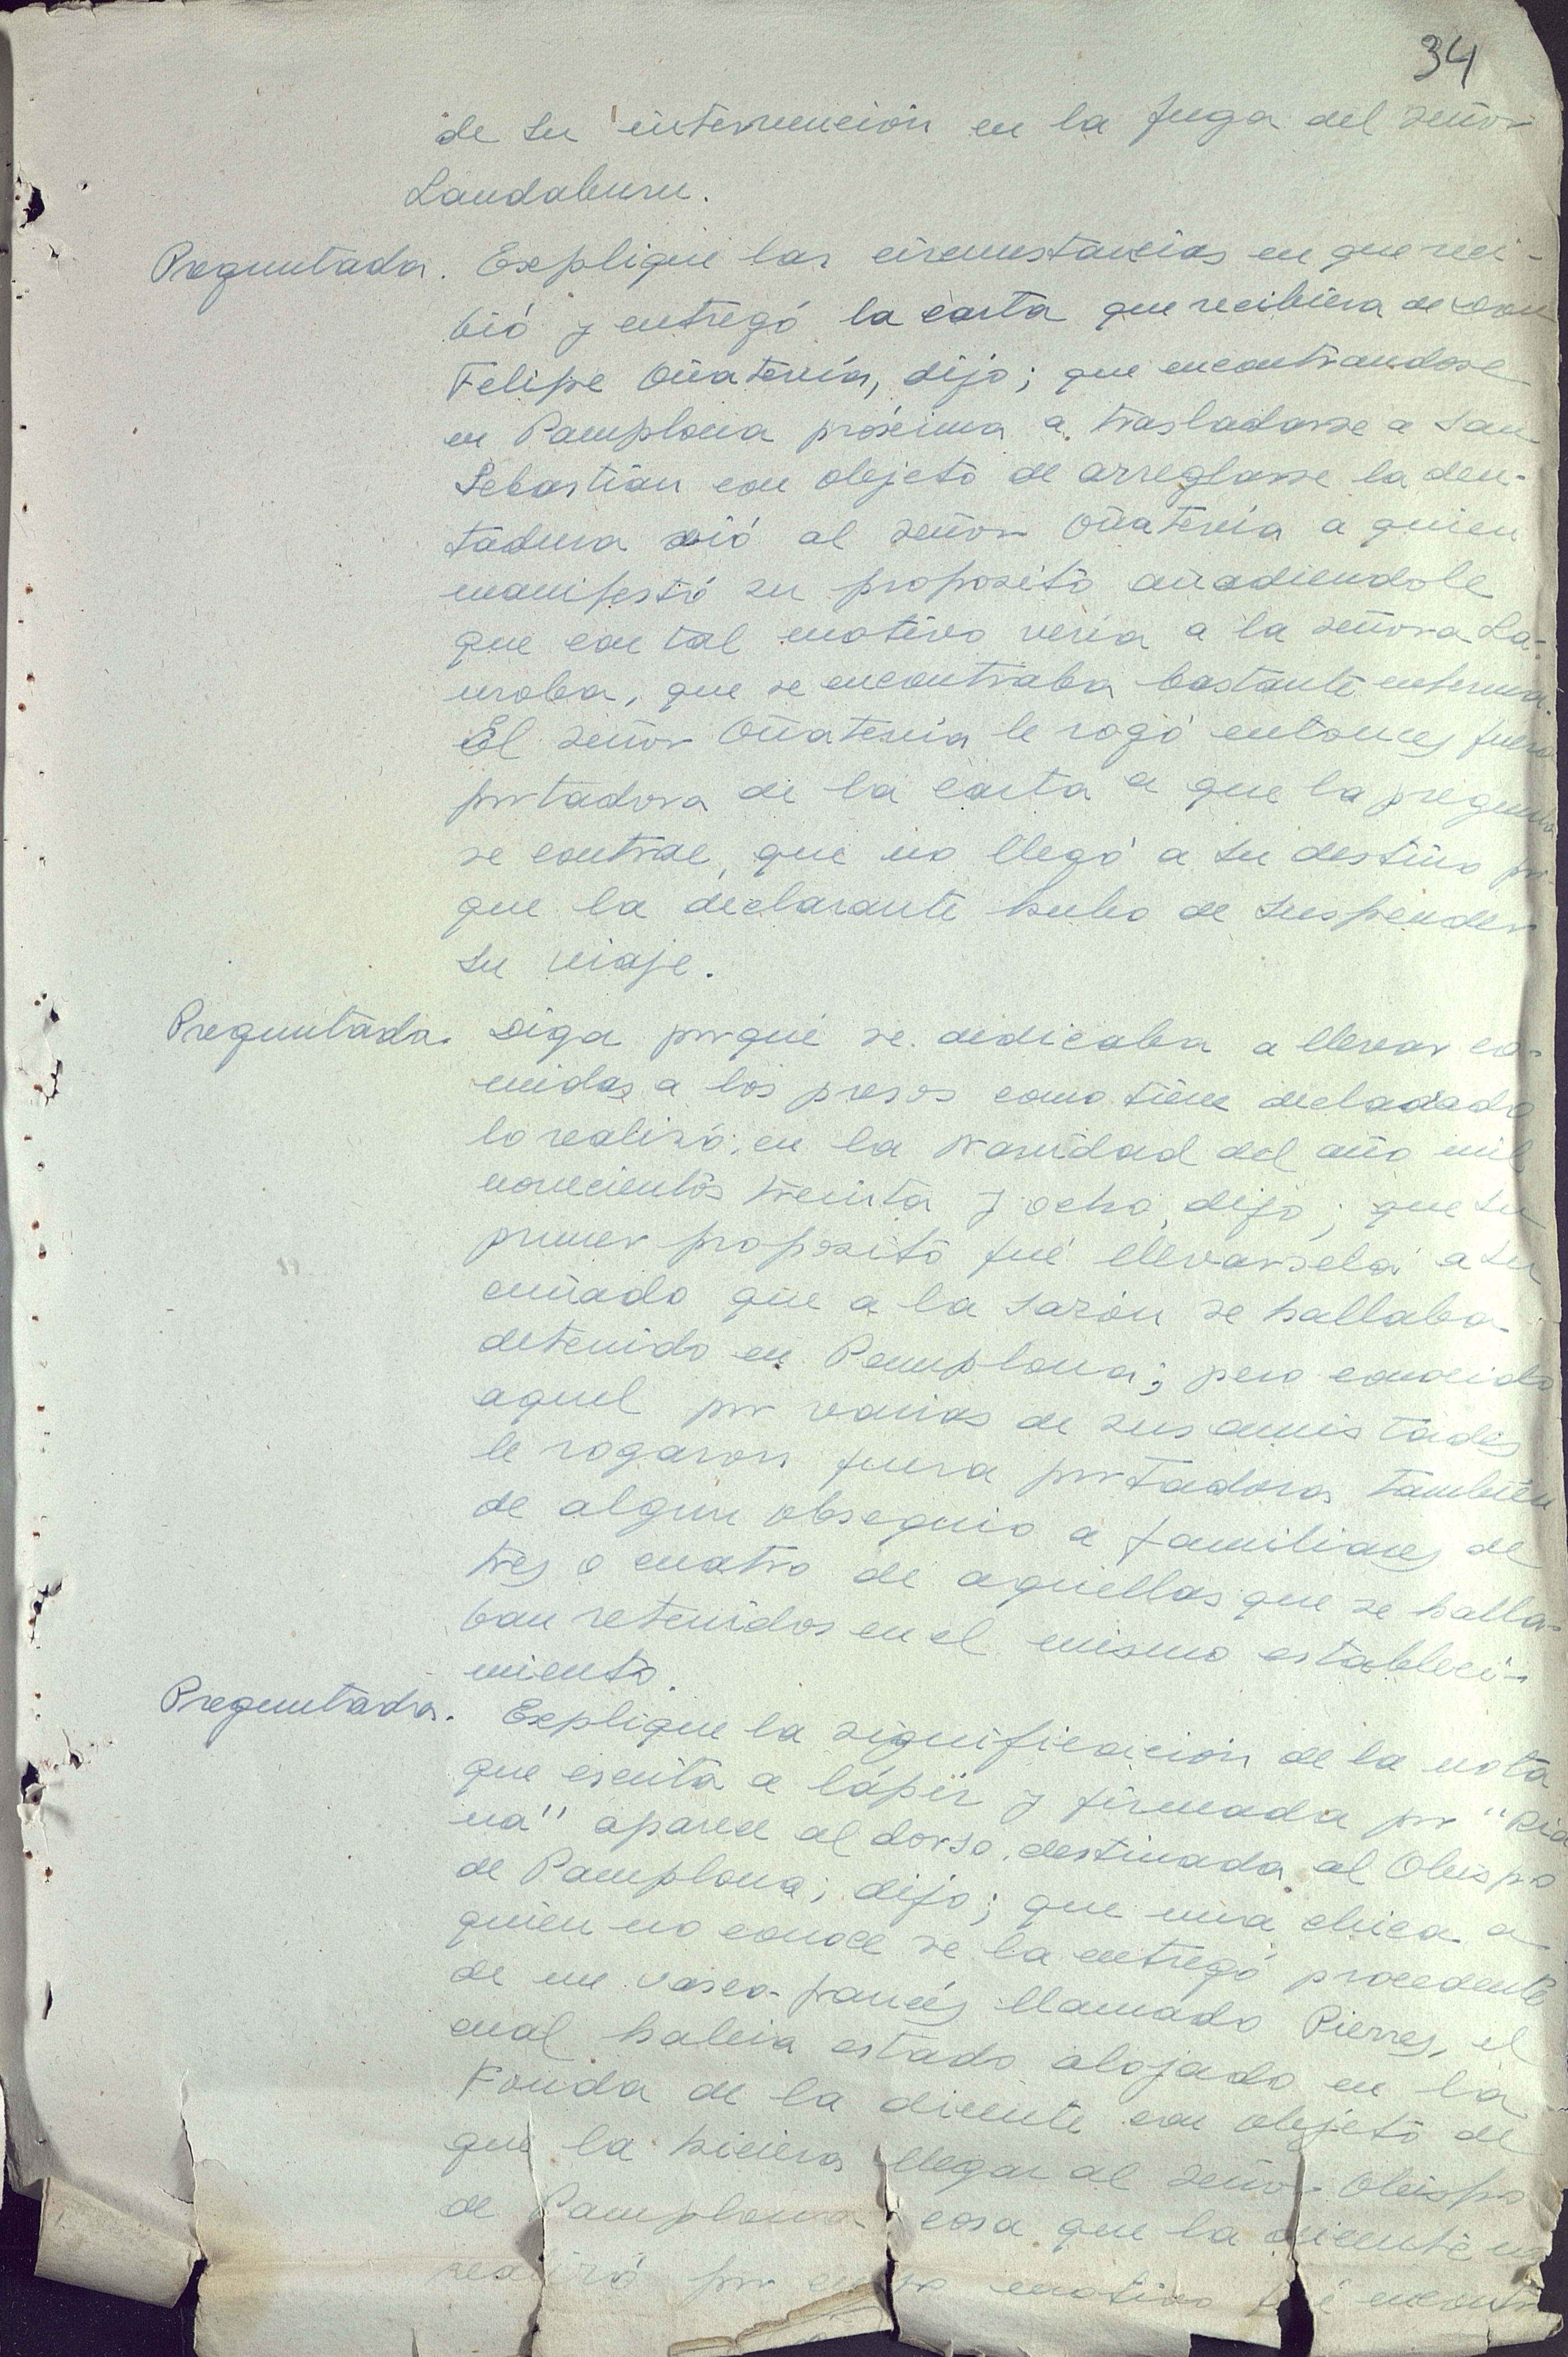 34
de su intervención en la fuga del señor
Landaburu.
Preguntada. Explique las circunstancias en que reci-
bió y entregó la carta que recibiera de Don
Felipe Oñatevia, dijo; que encontrandose
en Pamplona próxima a trasladarse a San
Sebastián con objeto de arreglarse la den-
tadura vió al señor Oñatevia a quien
manifestó su proposito añadiendole
que con tal motivo vería a la señora La-
rroba, que se encontraba bastante enferma.
El señor Oñatevia le rogó entonces fuera
portadora de la carta a que la pregunta
se contrae, que no llegó a su destino por-
que la declarante hubo de suspender
su viaje.
Preguntada. Diga porqué se dedicaba a llevar co-
midas a los presos como tiene decladado
lo realizó, en la Navidad del año mil
novecientos treinta y ocho, dijo; que su
primer proposito fué llevarsela a su
cuñado que a la sazón se hallaba
detenido en Pamplona; pero conocido
aquel por varias de sus amistades
le rogaron fuera portadora también
de algun obsequio a familiares de
tres o cuatro de aquellas que se halla-
ban retenidos en el mismo estableci-
miento.
Preguntada. Explique la significación de la nota
que escrita a lápiz y firmada por "
na" aparece al dorso, destinada al Obispo
de Pamplona; dijo; que una chica a
quien no conoce se la entregó procedente
de un vasco-francés llamado Pierres, el
cual habia estado alojado en la
Fonda de la diciente con objeto de
que la hiciera llegar al señor Obispo
de Pamplona cosa que la diciente no
realizó por cuyo motivo fué encontra